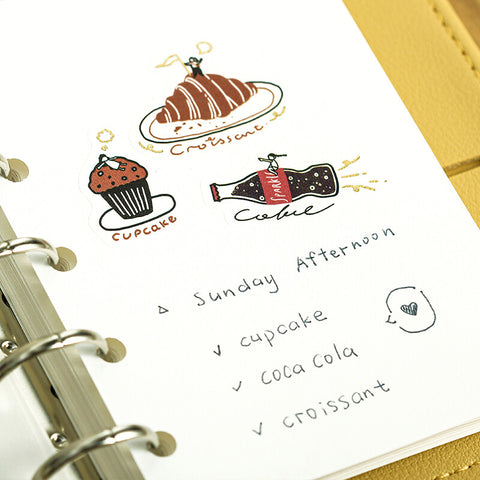 Croissant
cupcake
Sparkle
Coke
Sunday Afternoon
cupcake
coca cola
croissant